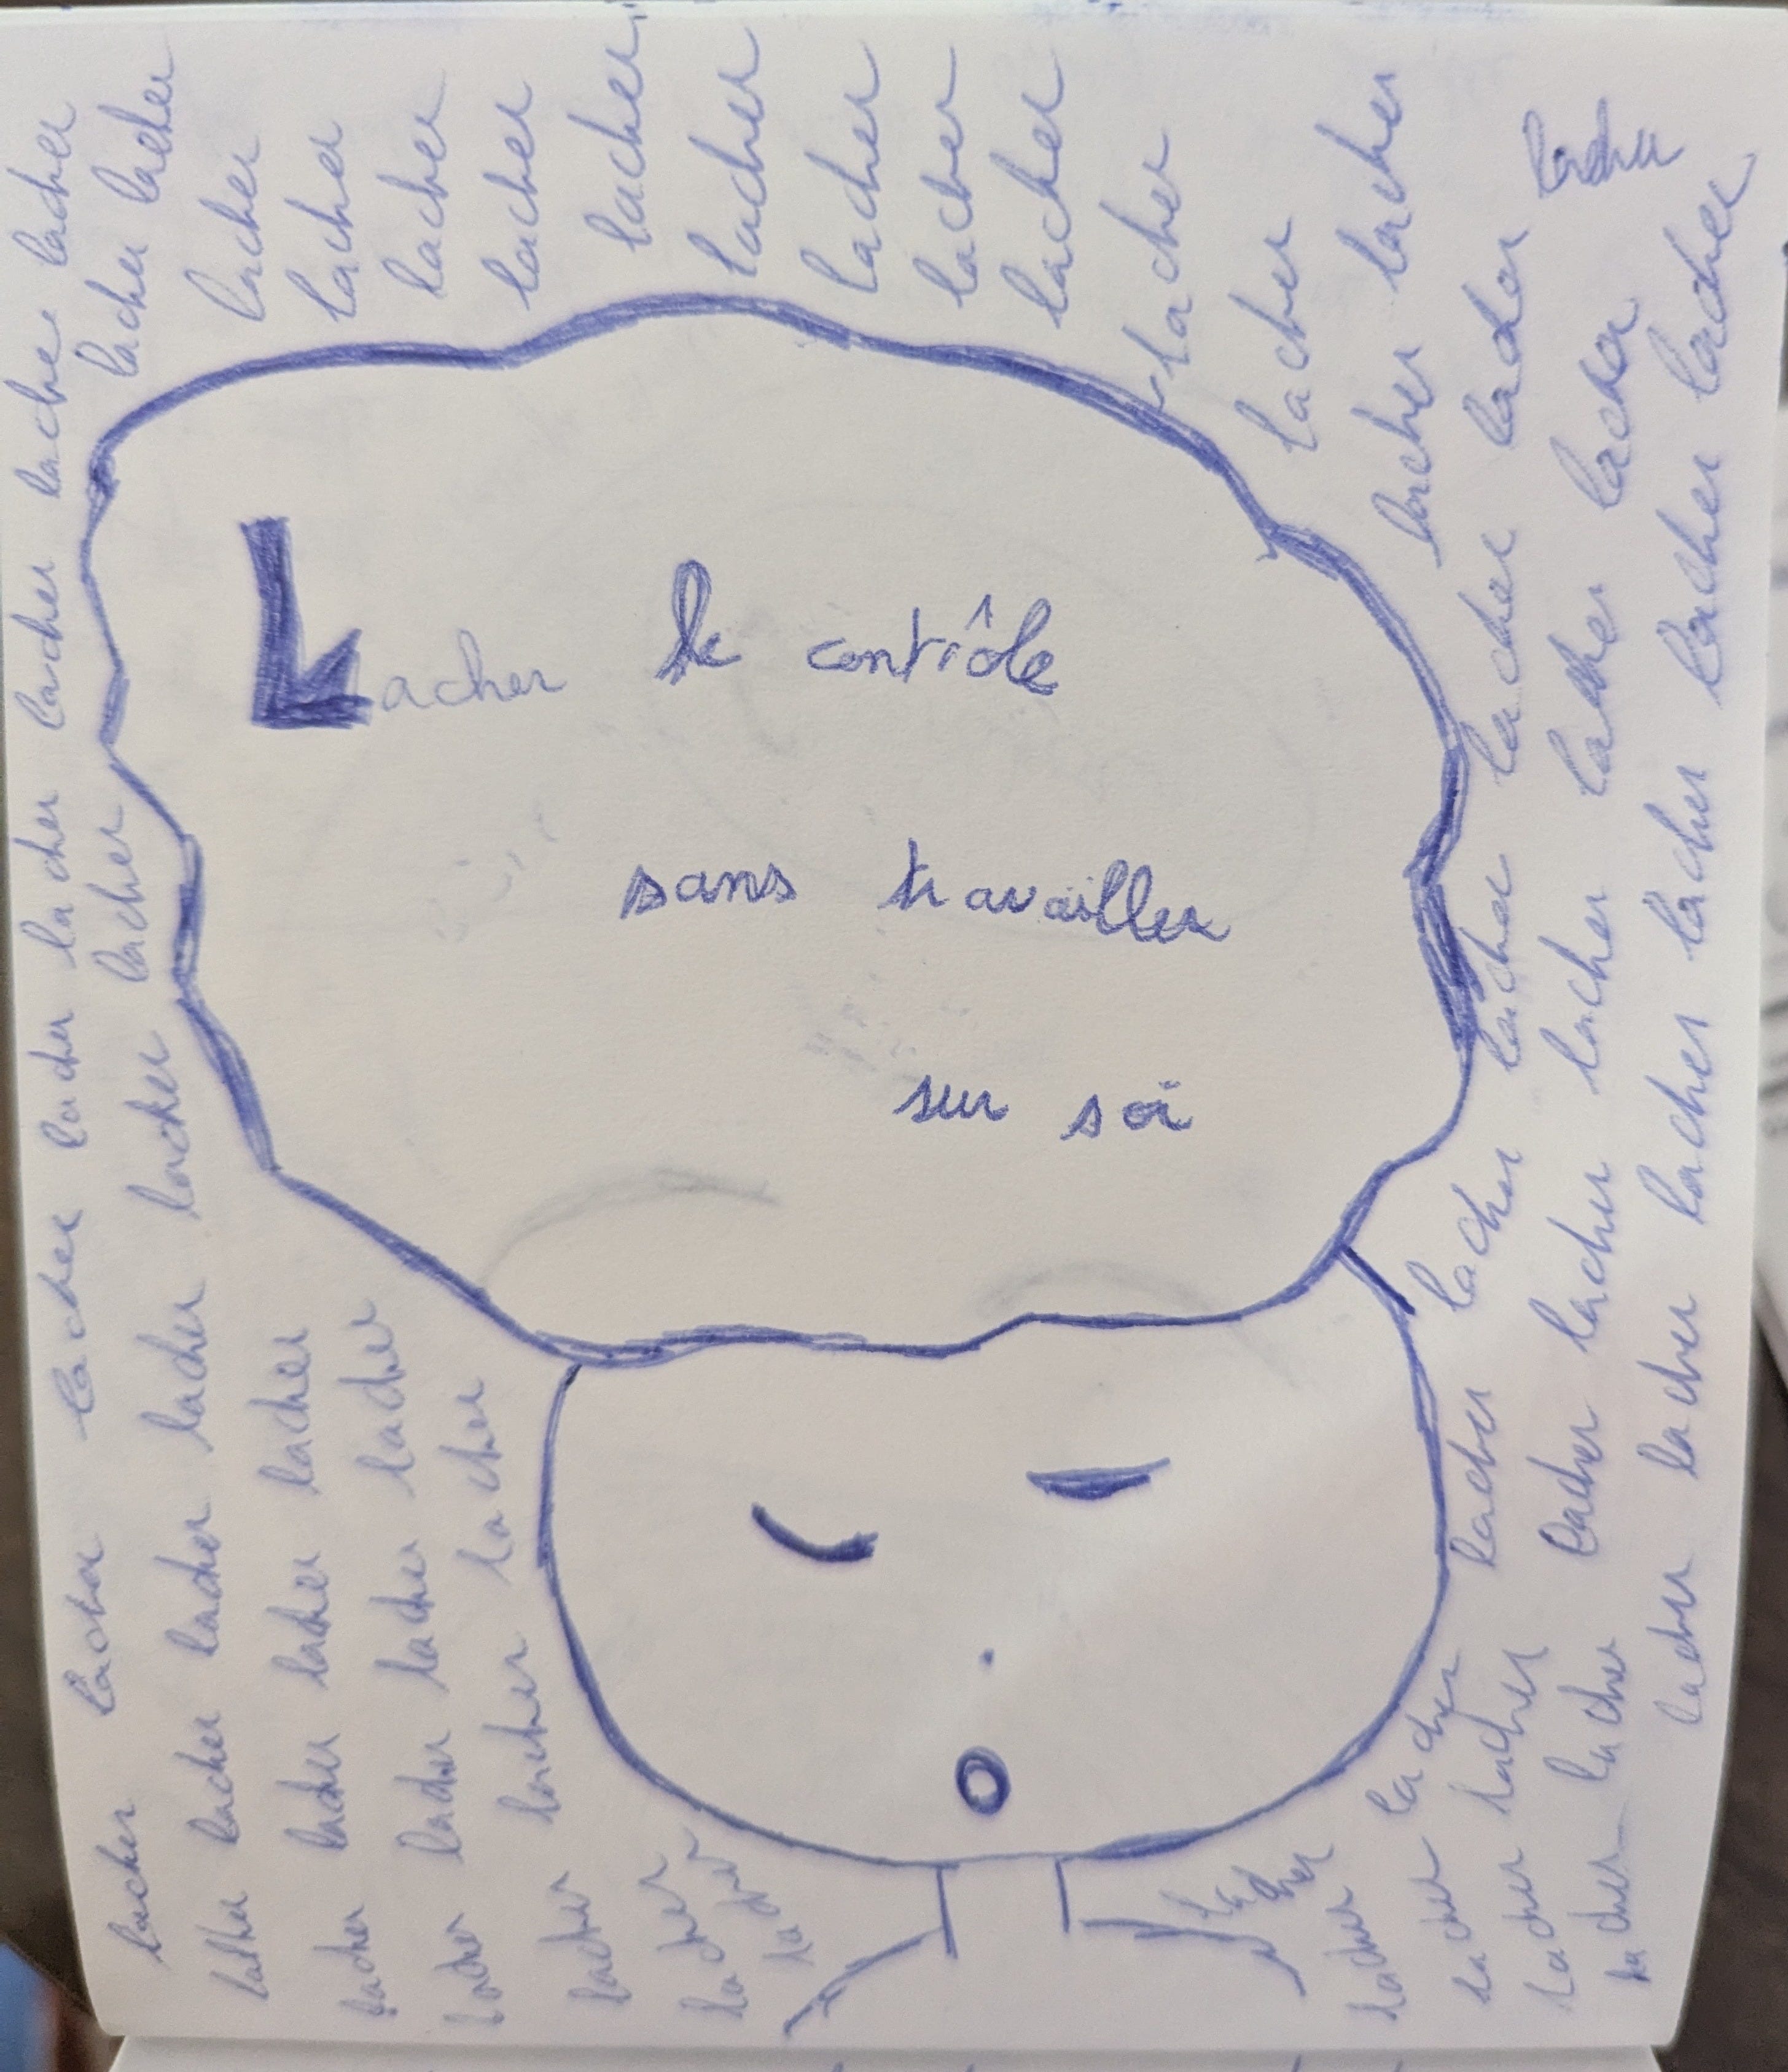 Lacher le contrôle
sans travailler
sur soi
lacher lacher lacher lacher lacher lacher lacher lacher lacher lacher lacher lacher
lacher lacher lacher
lacher
lacher
lacher
lacher
lacher
lacher
lacher
lacher
lacher
lacher
lacher
lacher lacher
lacher
lacher lacher lacher lacher lacher lacher lacher
lacher lacher lacher lacher lacher lacher lacher
lacher lacher lacher lacher lacher lacher lacher
lacher lacher lacher lacher lacher lacher lacher lacher
lacher lacher lacher lacher lacher
lacher lacher lacher lacher lacher
lacher lacher lacher lacher
lacher
lacher
lacher
lacher
lacher lacher
lacher lacher
lacher lacher